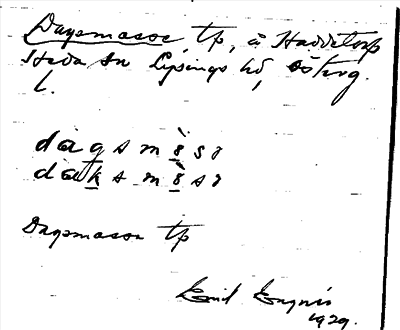 Dagsmosse, tp, å Haddetorp
Heda sn Lysings hd, Österg.
l.
dàgsmòsɘ
dàksmòsɘ
Dagsmossen tp
Emil
1929.